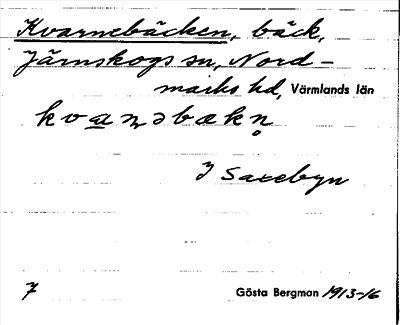 Kvarnebäcken, bäck,
Järnskogs sn, Nord-
marks hd, Värmlands län
kvaɲəbækn̥
I Saxebyn
7 Gösta Bergman 1913-16